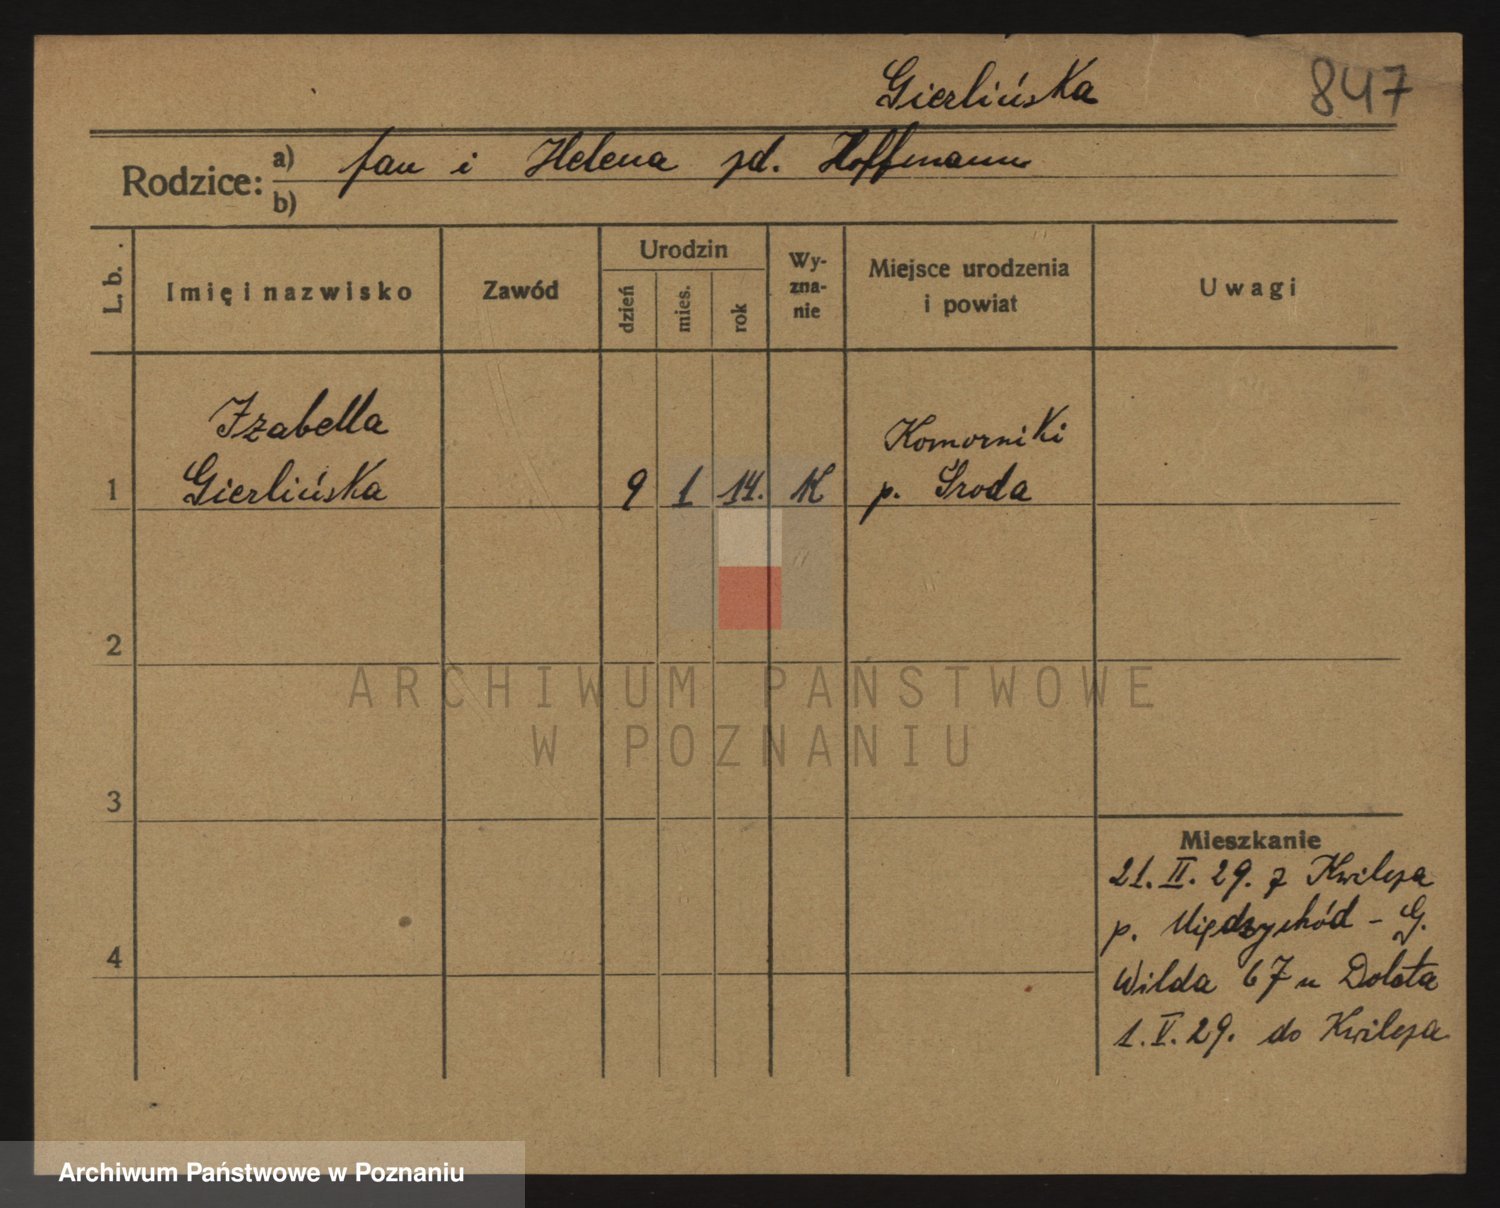 Gierlińska
847
Rodzice: a) Jan i Helena zd. Hoffmann
b)
L. b. Imię i nazwisko Zawód Urodzin dzień mies. rok Wyznanie Miejsce urodzenia i powiat Uwagi
Izabella
Gierlińska
1 9 1 14. K
Komorniki
p. Środa
2
ARCHIWUM PAŃSTWOWE
W POZNANIU
3
4
Mieszkanie
21. II. 29. z Kwilcza
p. Międzychód - G.
Wilda 67 u Dolata
1. V. 29. do Kwilcza
Archiwum Państwowe w Poznaniu